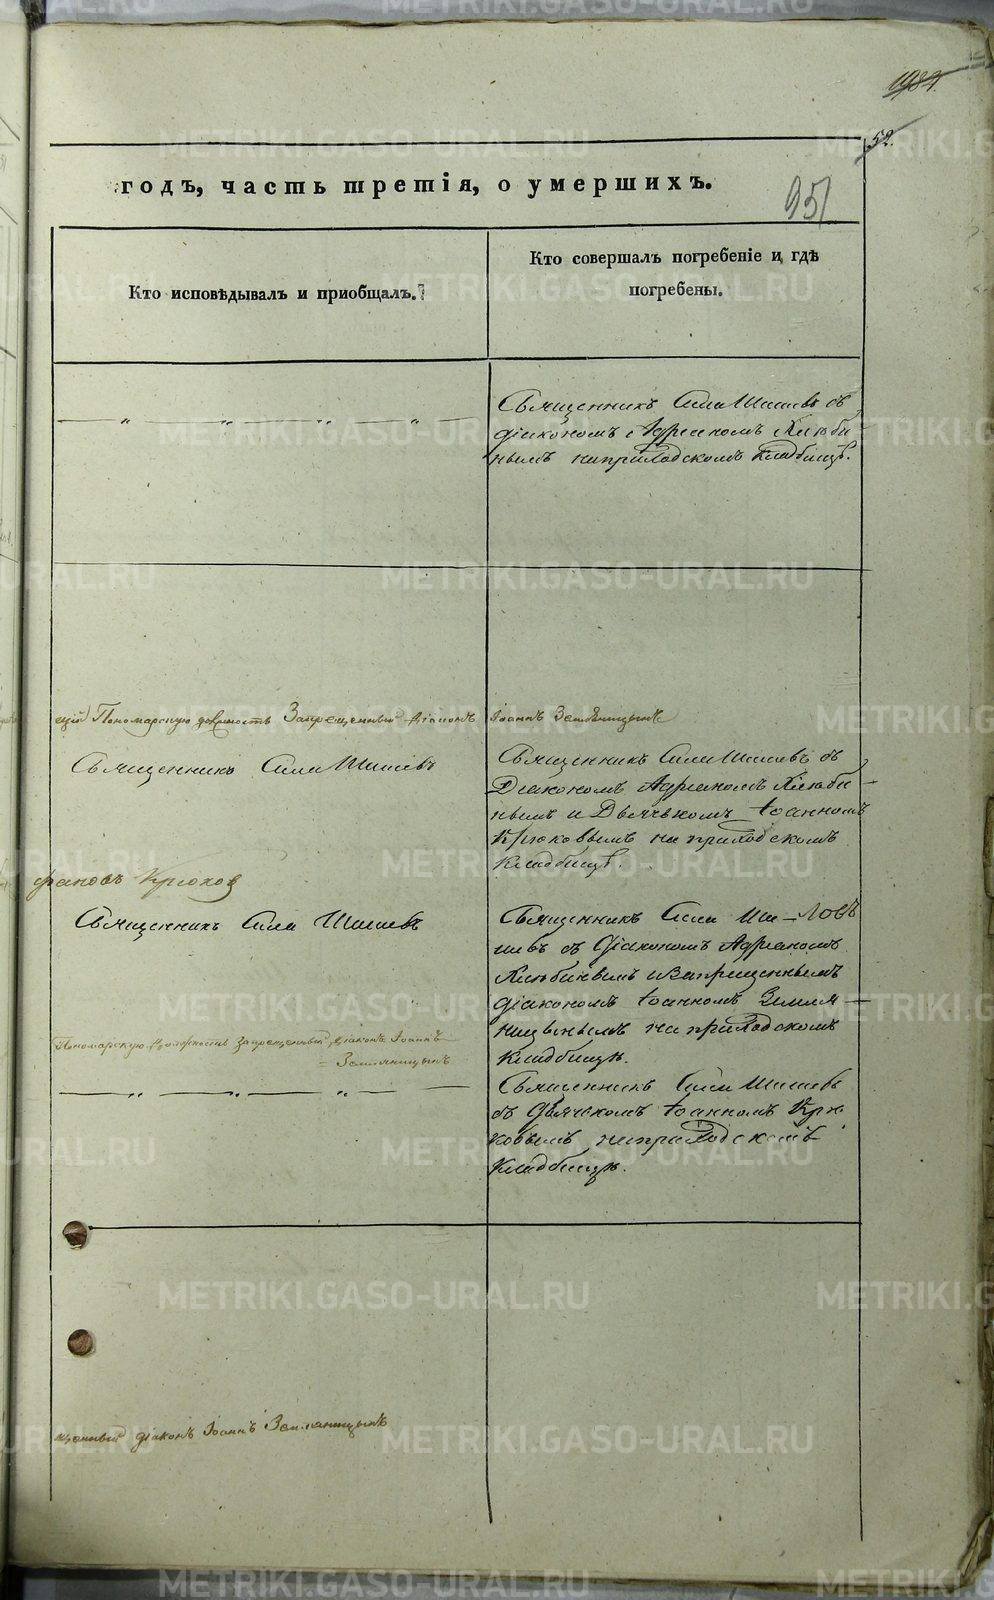 1984.
52.
годъ, часть третія, о умершихъ.
951
Кто исповѣдывалъ и приобщалъ.
Кто совершалъ погребеніе и гдѣ
погребены.
Священникъ Сила Шишевъ съ
діакономъ Адрианомъ Хлыби
нымъ на приходскомъ кладбищѣ.
Пономарскую должность Запрещенный діаконъ Іоаннъ Земляницынъ
Священникъ Сила Шишевъ
Священникъ Сила Шишевъ съ
Діакономъ Адрианомъ Хлыби
нымъ и Дьячкомъ Іоанномъ
Крюковымъ на приходскомъ
кладбищѣ.
фановъ Крюковъ
Священникъ Сила Шишевъ
Священникъ Сила Ши-
шевъ съ Діакономъ Адрианомъ
Хлыбинымъ и Запрещеннымъ
діакономъ Іоанномъ Земля
ницынымъ на приходскомъ
кладбищѣ.
Пономарскую должность запрещенный діаконъ Іоаннъ
Земляницынъ
Священникъ Сила Шишевъ
съ Дьячкомъ Іоанномъ Крю
ковымъ на приходскомъ
кладбищѣ.
щенный діаконъ Іоаннъ Земляницынъ
METRIKI.GASO-URAL.RU